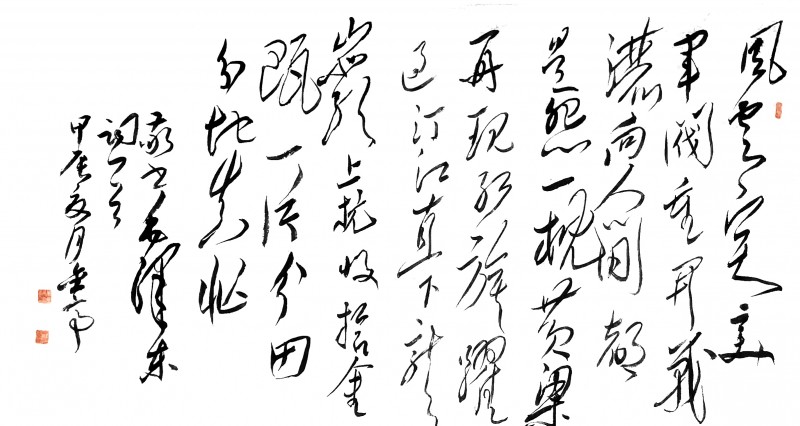 風雲突變
軍閥重開战
灑向人間都
是怨一枕黄粱
再現紅旗躍
過汀江直下龍
巖上杭收拾金
甌一片分田
分地真忙
敬书毛澤東
词一首
甲辰夏月